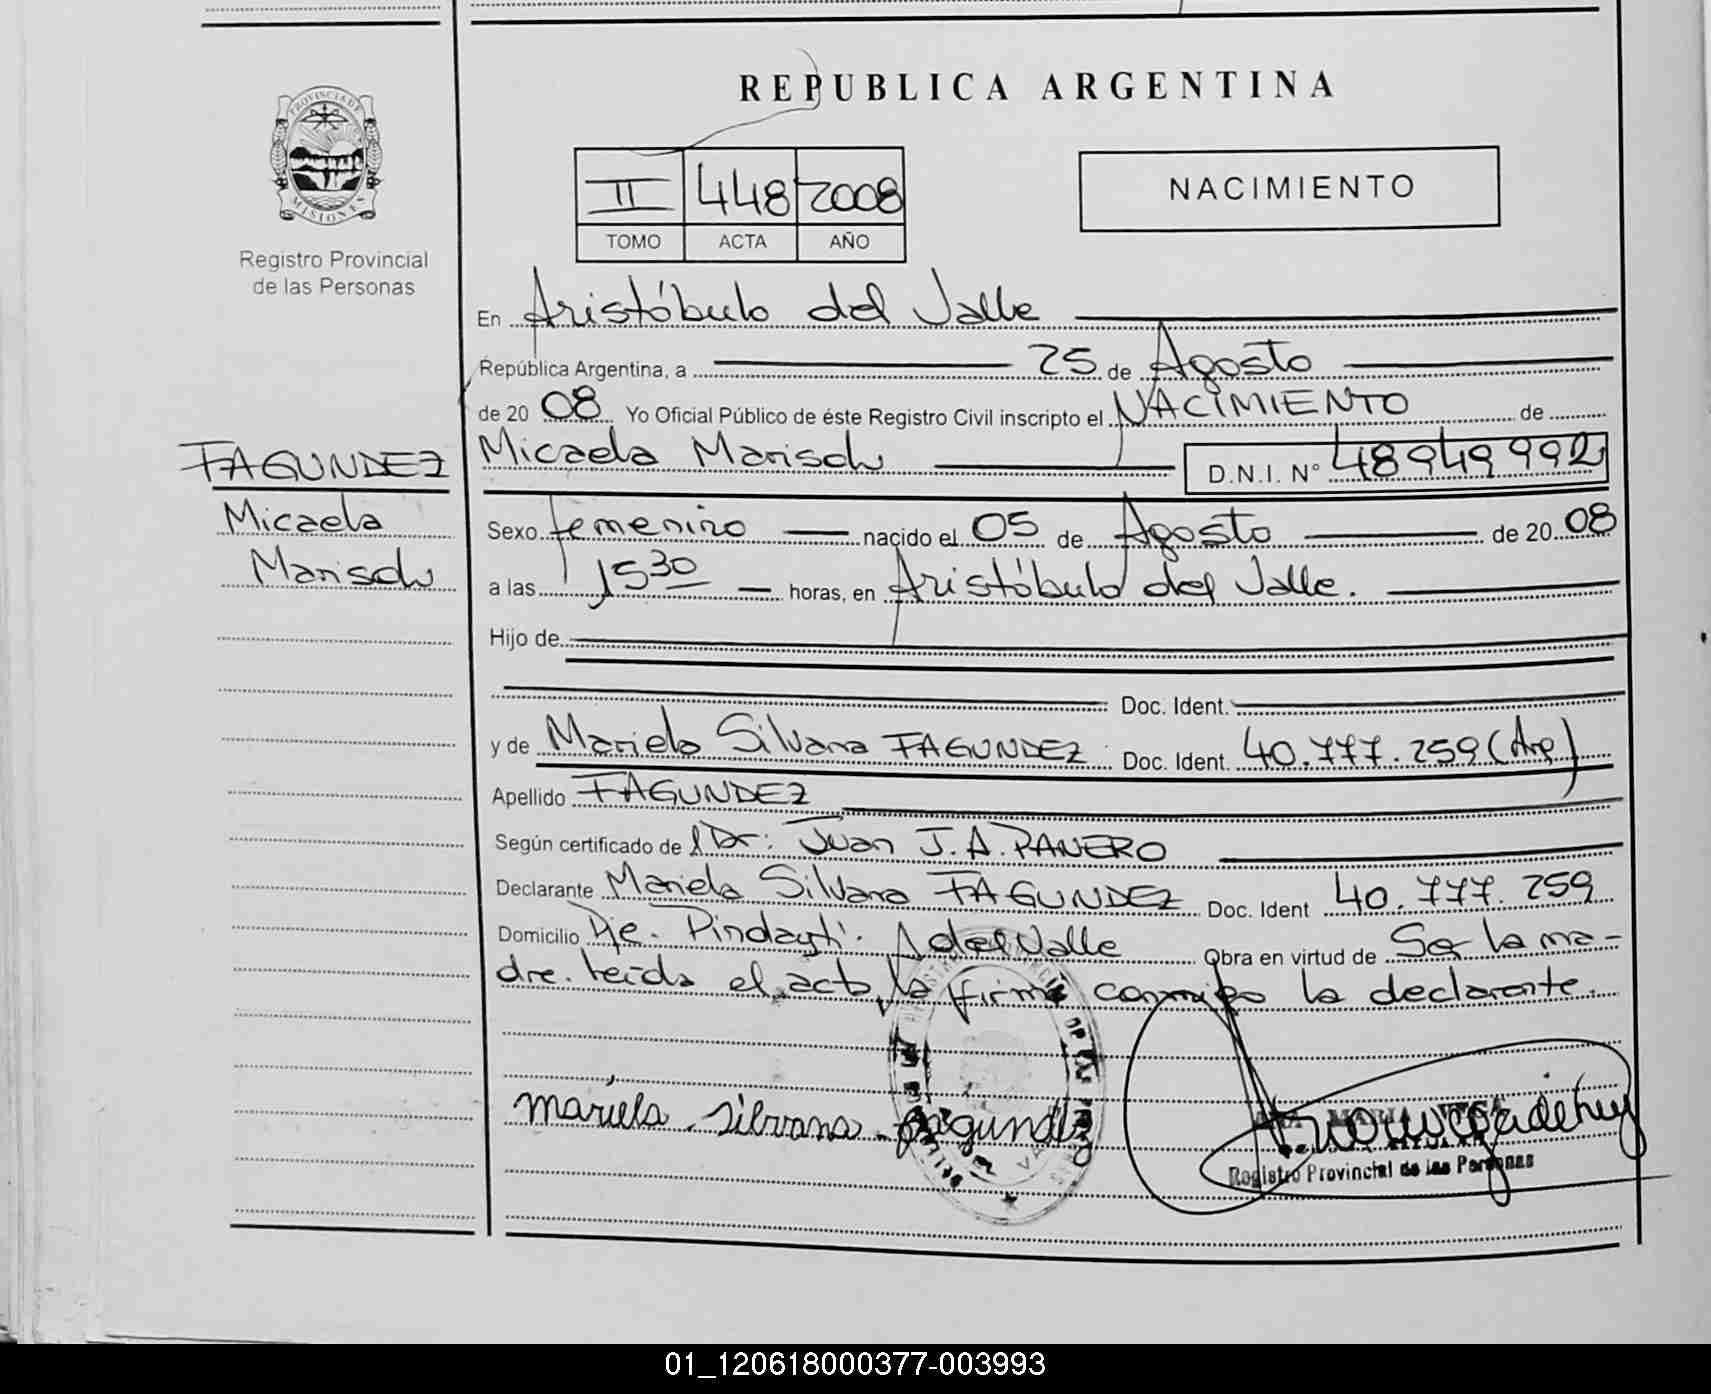 REPUBLICA ARGENTINA
PROVINCIA DE
MISIONES
Registro Provincial
de las Personas
II 448 2008
TOMO ACTA AÑO
NACIMIENTO
En Aristóbulo del Valle
República Argentina, a 25 de Agosto
de 20 08 Yo Oficial Público de éste Registro Civil inscripto el NACIMIENTO de
Micaela Marisol D.N.I. N° 48949992
FAGUNDEZ
Micaela
Marisol
Sexo femenino nacido el 05 de Agosto de 20 08
a las 15 30 horas, en Aristóbulo del Valle.
Hijo de
Doc. Ident.
y de Mariela Silvana FAGUNDEZ Doc. Ident. 40.777.259 (Arg)
Apellido FAGUNDEZ
Según certificado de l Dr: Juan J. A. PANERO
Declarante Mariela Silvana FAGUNDEZ Doc. Ident 40.777.259
Domicilio Pje. Pindayti. A del Valle Obra en virtud de Ser la ma-
dre. leida el acta, la firma conmigo la declarante.
mariela silvana fagundez
Registro Provincial de las Personas
01_120618000377-003993